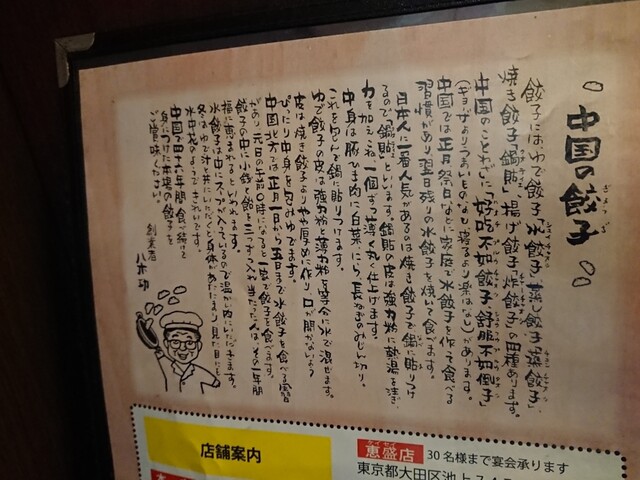 中国の餃子
餃子にはゆで餃子「水餃子」蒸し餃子「蒸餃子」
焼き餃子「鍋貼」揚げ餃子「炸餃子」の四種あります。
中国のことわざに「好吃不如餃子、舒服不如倒子」
(ギョウザよりうまいものなし、寝るより楽はなし)とあります。
中国では正月、祭日などに家庭で水餃子を作って食べる
習慣があり翌日残りの水餃子を焼いて食べます。
日本人に一番人気があるのは焼き餃子で鍋に貼りつけ
るので「鍋貼」といいます。鍋貼の皮は強力粉に熱湯を注ぎ
力を加えこね、一個ずつ薄く丸く仕上げます。
中身は豚ひき肉に白菜、にら、長ねぎのみじん切り。
これを包んで鍋に貼りつけます。
ゆで餃子の皮は強力粉と薄力粉を等分に水で混ぜます。
皮は焼き餃子よりやや厚めに作り、口が開かないよう
ぴったり中身を包むゆでます。
中国北方では正月一日から五日まで水餃子を食べる風習
があり、元日の午前0時になると一家で餃子を食べます。
餃子の中に小銭を餡と三つか入れ当たった人は、その一年間
福に恵まれるといわれます。
水餃子は中にスープが入っているので温かい内にいただきます。
冬はゆで汁と共にいただくと身体があたたまり、見た目にも
水中花のようできれいです。
中国で田十年間食べ続けて
身につけた本場の餃子を
ご賞味ください。
創業者
八木
店舗案内
ケイセイ
恵盛店
30名様まで宴会承ります
東京都大田区池上7-4-5